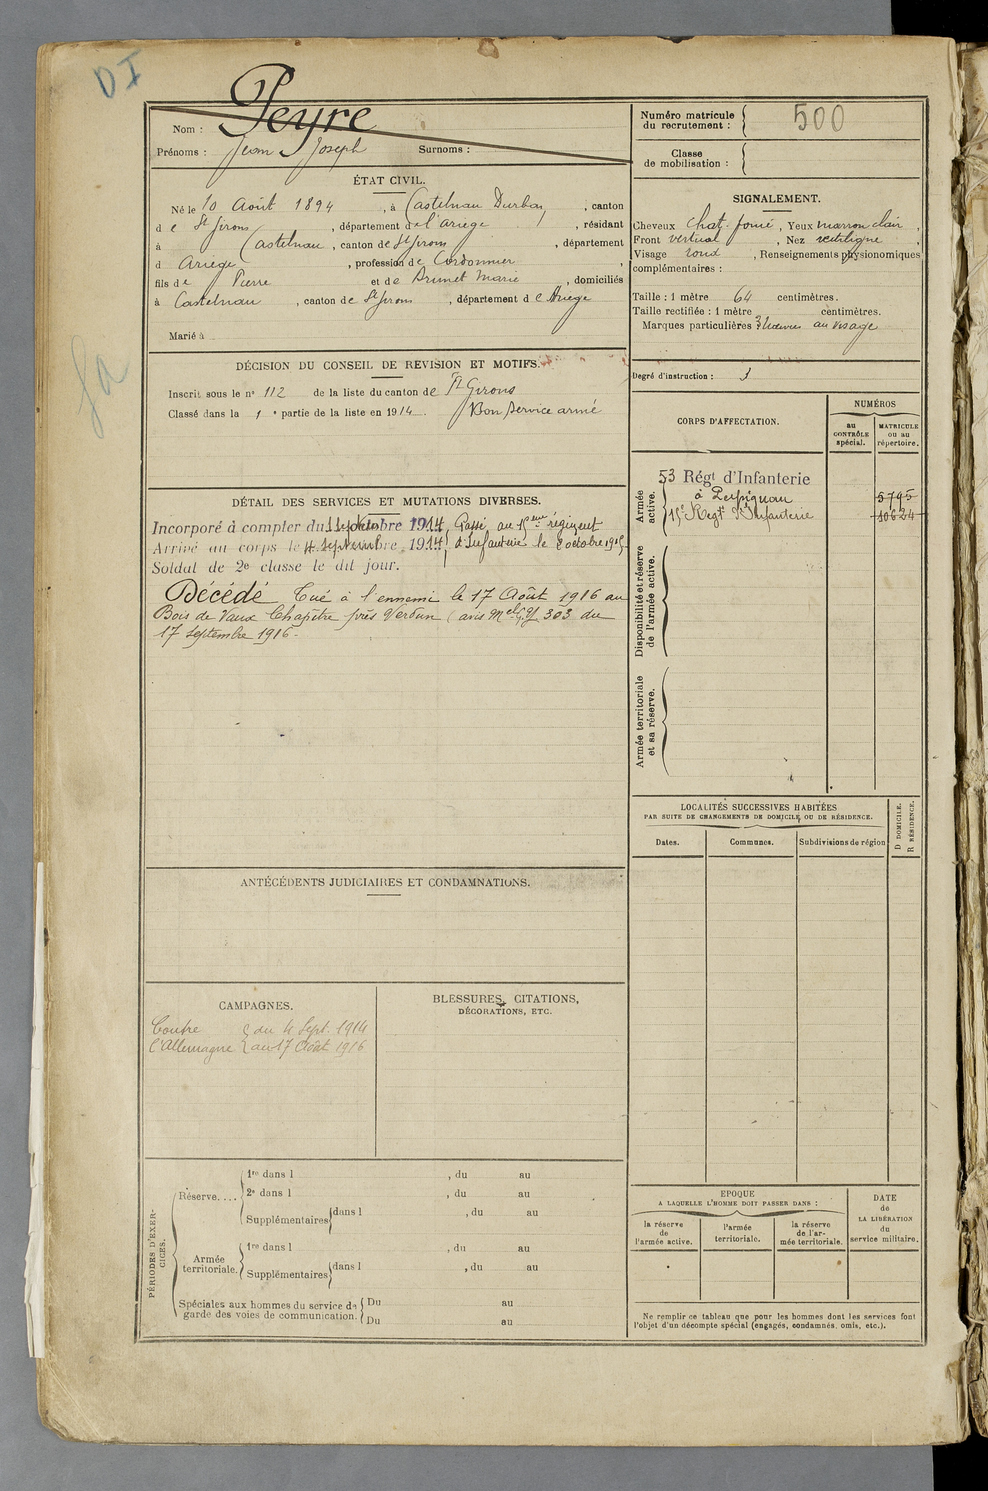 DI
Peyre
Nom :
Prénoms : Jean Joseph Surnoms :
Numéro matricule du recrutement : 500
Classe de mobilisation :
ÉTAT CIVIL.
Né le 10 Août 1894, à Castelnau Durban, canton
de St Girons, département de l'Ariège, résidant
à Castelnau, canton de St Girons, département
d Ariège, profession de Cordonnier,
fils de Pierre et de Brunet Marie, domiciliés
à Castelnau, canton de St Girons, département de Ariège
Marié à
SIGNALEMENT.
Cheveux chat. foncé, Yeux marron clair,
Front vertical, Nez rectiligne,
Visage rond, Renseignements physionomiques
complémentaires :
Taille : 1 mètre 64 centimètres.
Taille rectifiée : 1 mètre centimètres.
Marques particulières au visage
Degré d'instruction : 3
DÉCISION DU CONSEIL DE REVISION ET MOTIFS.
Inscrit sous le n° 112 de la liste du canton de St Girons
Classé dans la 1e partie de la liste en 1914. Bon service armé
CORPS D'AFFECTATION.
NUMÉROS
au CONTRÔLE spécial.
MATRICULE ou au répertoire.
Armée active.
53 Régt d'Infanterie
à Perpignan 5795
15e Régt d'Infanterie 10624
Disponibilité et réserve de l'armée active.
Armée territoriale et sa réserve.
DÉTAIL DES SERVICES ET MUTATIONS DIVERSES.
Incorporé à compter du 1914, Passé au 15eme régiment
Arrivé au corps le 4 septembre 1914, d'Infanterie le 8 octobre 1915.
Soldat de 2e classe le dit jour.
Décédé Tué à l'ennemi le 17 Août 1916 au
Bois de Vaux Chapitre près Verdun (avis Mel 303 du
17 septembre 1916.
LOCALITÉS SUCCESSIVES HABITÉES
PAR SUITE DE CHANGEMENTS DE DOMICILE OU DE RÉSIDENCE.
Dates. Communes. Subdivisions de région
D DOMICILE.
R RÉSIDENCE.
ANTÉCÉDENTS JUDICIAIRES ET CONDAMNATIONS.
CAMPAGNES.
Contre du 4 Sept. 1914
l'Allemagne au 17 Août 1916
BLESSURES, CITATIONS,
DÉCORATIONS, ETC.
PÉRIODES D'EXERCICES.
Réserve....
1re dans l , du au
2e dans l , du au
Supplémentaires dans l , du au
Armée territoriale.
1re dans l , du au
Supplémentaires dans l , du au
Spéciales aux hommes du service de garde des voies de communication.
Du au
Du au
EPOQUE
A LAQUELLE L'HOMME DOIT PASSER DANS :
la réserve de l'armée active.
l'armée territoriale.
la réserve de l'armée territoriale.
DATE de LA LIBÉRATION du service militaire.
Ne remplir ce tableau que pour les hommes dont les services font
l'objet d'un décompte spécial (engagés, condamnés, omis, etc.).